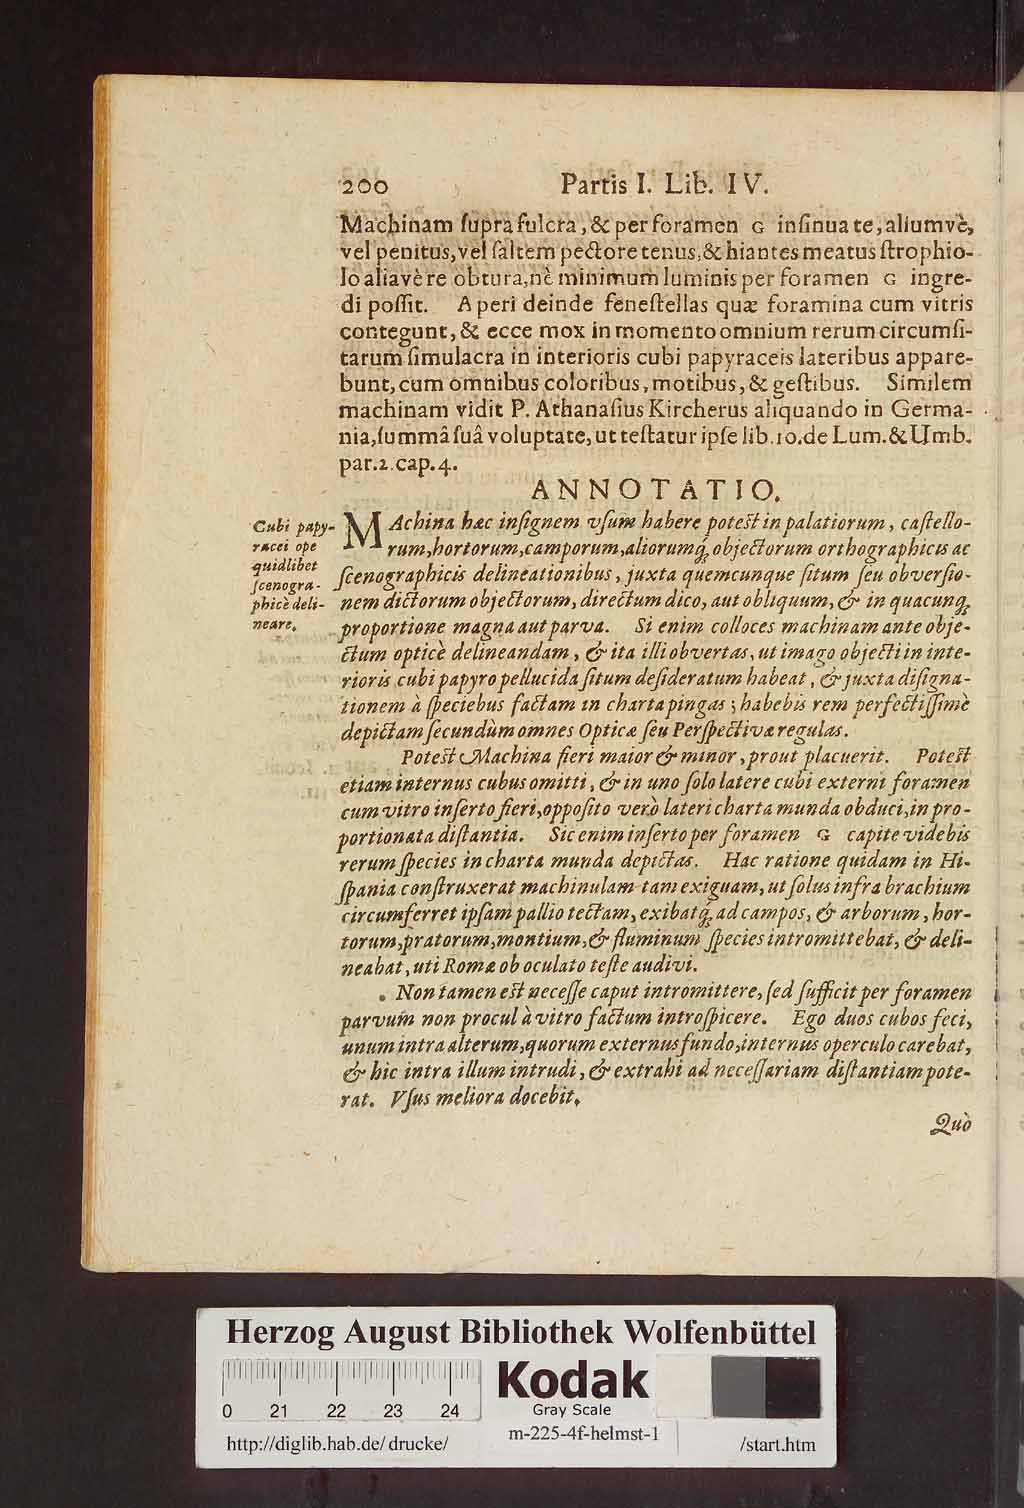 200 Partis I. Lib. IV.
Machinam ſupra fulcra, & per foramen G inſinua te, aliumvè,
vel penitus, vel ſaltem pectore tenus, & hiantes meatus ſtrophio-
lo aliavè re obtura, nè minimum luminis per foramen G ingre-
di poſſit. Aperi deinde feneſtellas quæ foramina cum vitris
contegunt, & ecce mox in momento omnium rerum circumſi-
tarum ſimulacra in interioris cubi papyraceis lateribus appare-
bunt, cum omnibus coloribus, motibus, & geſtibus. Similem
machinam vidit P. Athanaſius Kircherus aliquando in Germa-
nia, ſummâ ſuâ voluptate, ut teſtatur ipſe lib. 10. de Lum. & Umb.
par. 2. cap. 4.
ANNOTATIO.
Cubi papy-
racei ope
quidlibet
ſcenogra-
phicè deli-
neare.
MAchina hæc inſignem vſum habere poteſt in palatiorum, caſtello-
rum, hortorum, camporum, aliorumq́; objectorum orthographicis ac
ſcenographicis delineationibus, juxta quemcunque ſitum ſeu obverſio-
nem dictorum objectorum, directum dico, aut obliquum, & in quacunq;
proportione magna aut parva. Si enim colloces machinam ante obje-
ctum opticè delineandam, & ita illi obvertas, ut imago objecti in inte-
rioris cubi papyro pellucida ſitum deſideratum habeat, & juxta diſigna-
tionem à ſpeciebus factam in charta pingas; habebis rem perfectiſſimè
depictam ſecundùm omnes Opticæ ſeu Perſpectivæ regulas.
Poteſt Machina fieri maior & minor, prout placuerit. Poteſt
etiam internus cubus omitti, & in uno ſolo latere cubi externi foramen
cum vitro inſerto fieri, oppoſito verò lateri charta munda obduci, in pro-
portionata diſtantia. Sic enim inſerto per foramen G capite videbis
rerum ſpecies in charta munda depictas. Hac ratione quidam in Hi-
ſpania conſtruxerat machinulam tam exiguam, ut ſolus infra brachium
circumferret ipſam pallio tectam, exibatq́; ad campos, & arborum, hor-
torum, pratorum, montium, & fluminum ſpecies intromittebat, & deli-
neabat, uti Romæ ob oculato teſte audivi.
Non tamen eſt neceſſe caput intromittere, ſed ſufficit per foramen
parvum non procul à vitro factum introſpicere. Ego duos cubos feci,
unum intra alterum, quorum externus fundo, internus operculo carebat,
& hic intra illum intrudi, & extrahi ad neceſſariam diſtantiam pote-
rat. Vſus meliora docebit.
Quò
Herzog August Bibliothek Wolfenbüttel
0 21 22 23 24
Kodak
Gray Scale
http://diglib.hab.de/drucke/ m-225-4f-helmst-1 /start.htm